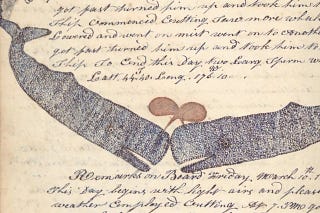 got past turned him up and took him to
Ship Commenced Cutting Saw more whale
Lowered and went on mist went on to another
got past turned him up and took him to
Ship To End this Day two Large Sperm w
Latt 44:40 Long 176.10
Remarks on Board Friday March 10
This Day begins with light airs and pleas
weather Employed Cutting At 7 PM g